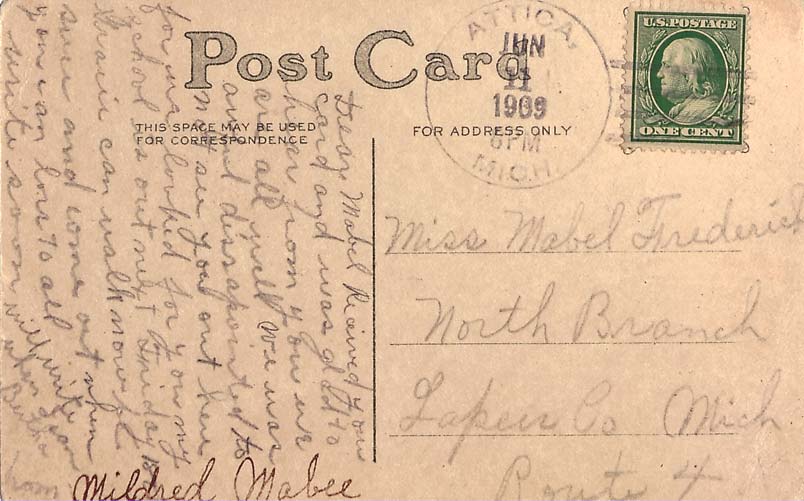 Post Card
THIS SPACE MAY BE USED
FOR CORRESPONDENCE
FOR ADDRESS ONLY
ATTICA,
JUN
11
1909
6 PM
MICH.
U.S. POSTAGE
ONE CENT
Miss Mabel Frederick
North Branch
Lapeer Co Mich
Route 4
Dear Mabel Recieved you
card and was glad to
hear from you we
are all well We was
dissapointed to
not see you out here
for ma looked for you my
school is out next Friday 18
can walk now
sure and come out when
you can love to all
write soon will write
when I can
from
Mildred Mabee